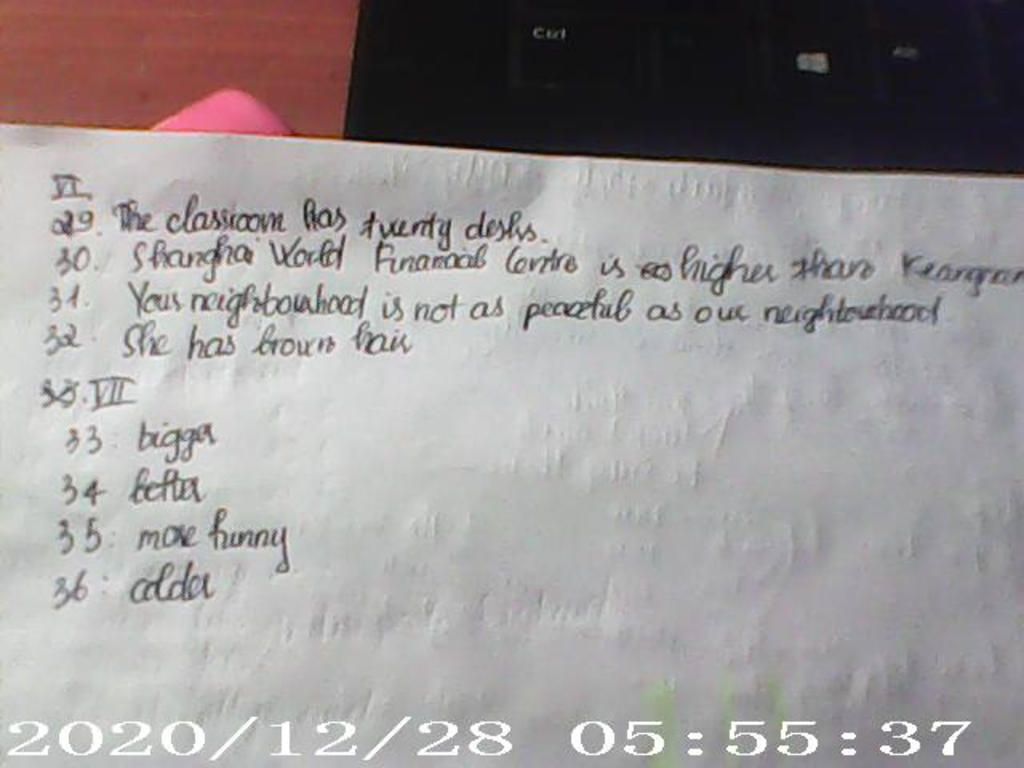 Ctrl
VI
29. The classroom has twenty desks.
30. Shanghai World Financial Centre is higher than Keangnam
31. Your neighbourhood is not as peaceful as our neighbourhood
32. She has brown hair
33. VII
33: bigger
34 better
35: more funny
36: colder
2020/12/28 05:55:37